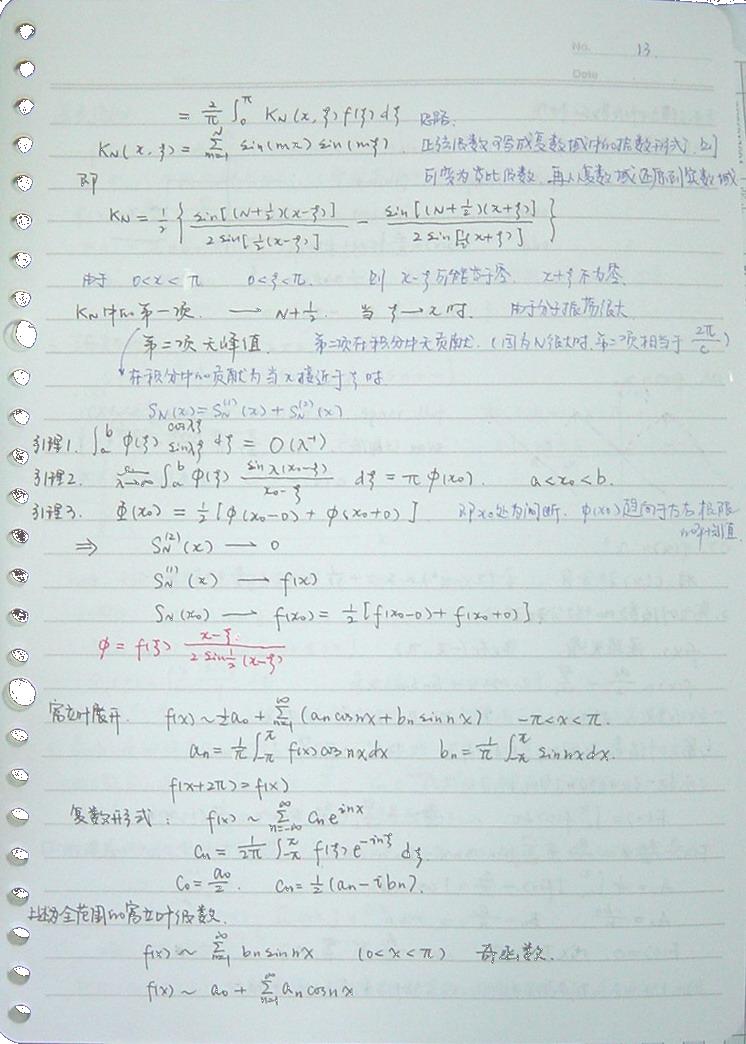 No. 13
Date
= 2/π ∫₀^π K_N(x, ξ) f(ξ) dξ 思路:
K_N(x, ξ) = Σ_{m=1}^{N} sin(mx) sin(mξ) 正弦级数可写成复数域中的指数形式, 则
即 可变为等比级数, 再从复数域还原到实数域
K_N = 1/2 { sin[(N+1/2)(x-ξ)] / 2 sin[1/2(x-ξ)] - sin[(N+1/2)(x+ξ)] / 2 sin[1/2(x+ξ)] }
由于 0<x<π 0<ξ<π. 则 x-ξ可能等于零 x+ξ不为零.
K_N中的第一项. → N+1/2. 当 ξ→x 时. 由于分子振荡很大
第二项无峰值. 第二项在积分中无贡献. (因为N很大时, 第二项相当于 2π/c)
在积分中的贡献为当x接近于ξ时
S_N(x) = S_N^{(1)}(x) + S_N^{(2)}(x)
引理1. ∫_a^b φ(ξ) cosλξ sinλξ dξ = O(λ⁻¹)
引理2. lim_{λ→∞} ∫_a^b φ(ξ) sinλ(x₀-ξ) / x₀-ξ dξ = π φ(x₀). a<x₀<b.
引理3. Φ(x₀) = 1/2 [φ(x₀-0) + φ(x₀+0)] 即x₀处为间断. φ(x₀)趋向于左右极限
的平均值.
⇒ S_N^{(2)}(x) → 0
S_N^{(1)}(x) → f(x)
S_N(x₀) → f(x₀) = 1/2 [f(x₀-0) + f(x₀+0)]
φ = f(ξ) x-ξ / 2 sin 1/2 (x-ξ)
富立叶展开. f(x) ~ 1/2 a₀ + Σ_{n=1}^{∞} (a_n cos nx + b_n sin nx) -π<x<π.
a_n = 1/π ∫_{-π}^{π} f(x) cos nx dx b_n = 1/π ∫_{-π}^{π} sin nx dx.
f(x+2π) = f(x)
复数形式: f(x) ~ Σ_{n=-∞}^{∞} C_n e^{inx}
C_n = 1/2π ∫_{-π}^{π} f(ξ) e^{-inξ} dξ
C₀ = a₀/2. C_n = 1/2 (a_n - i b_n).
上述为全范围的富立叶级数.
f(x) ~ Σ_{n=1}^{∞} b_n sin nx (0<x<π) 奇函数.
f(x) ~ a₀ + Σ_{n=1}^{∞} a_n cos nx